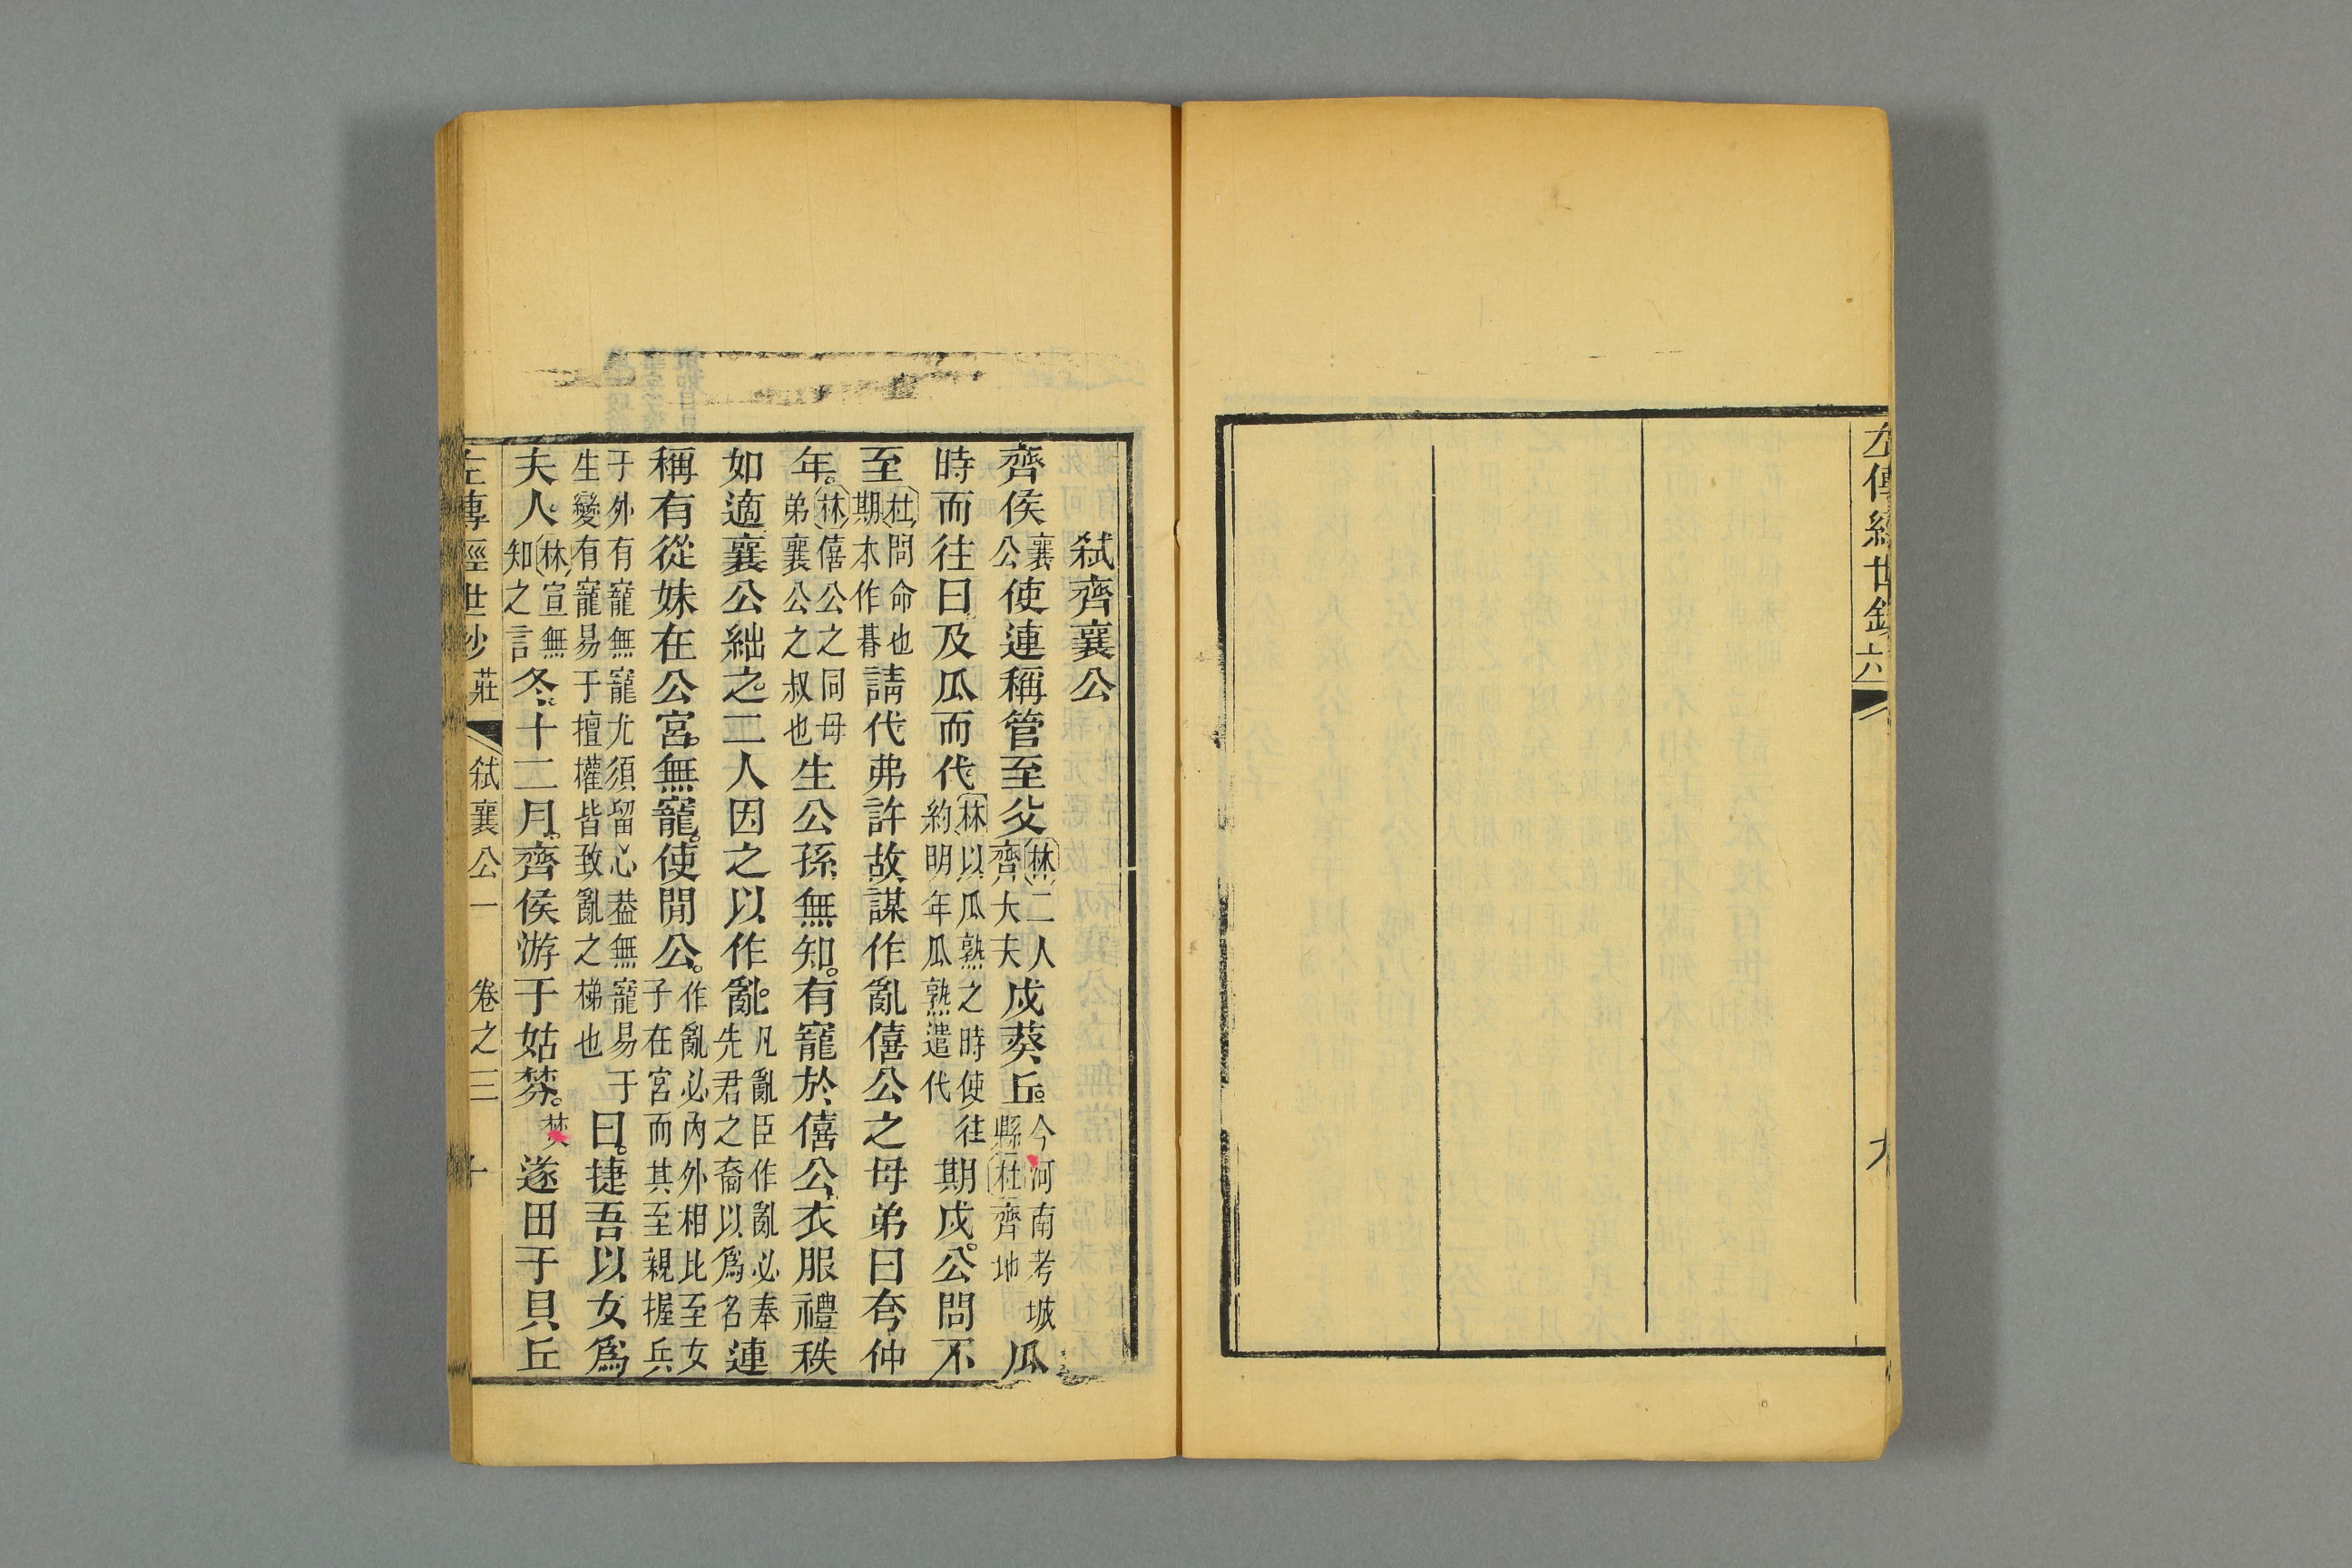 左傳經世鈔 六
弑齊襄公
齊侯襄公使連稱管至父林二人齊大夫戍葵丘今河南考城縣杜齊地瓜
時而往曰及瓜而代林以瓜熟之時使往約明年瓜熟遣代期戍公問不
至杜問命也期本作朞請代弗許故謀作亂僖公之母弟曰夸仲
年林僖公之同母弟襄公之叔也生公孫無知有寵於僖公衣服禮秩
如適襄公絀之二人因之以作亂凡亂臣作亂必奉先君之裔以爲名連
稱有從妹在公宮無寵使間公作亂必內外相比至女子在宮而其至親握兵
于外有寵無寵尤須留心葢無寵易于生變有寵易于擅權皆致亂之梯也曰捷吾以女爲
夫人林宣無知之言冬十二月齊侯游于姑棼棼遂田于貝丘
左傳經世鈔 莊 弑襄公一 卷之三 十